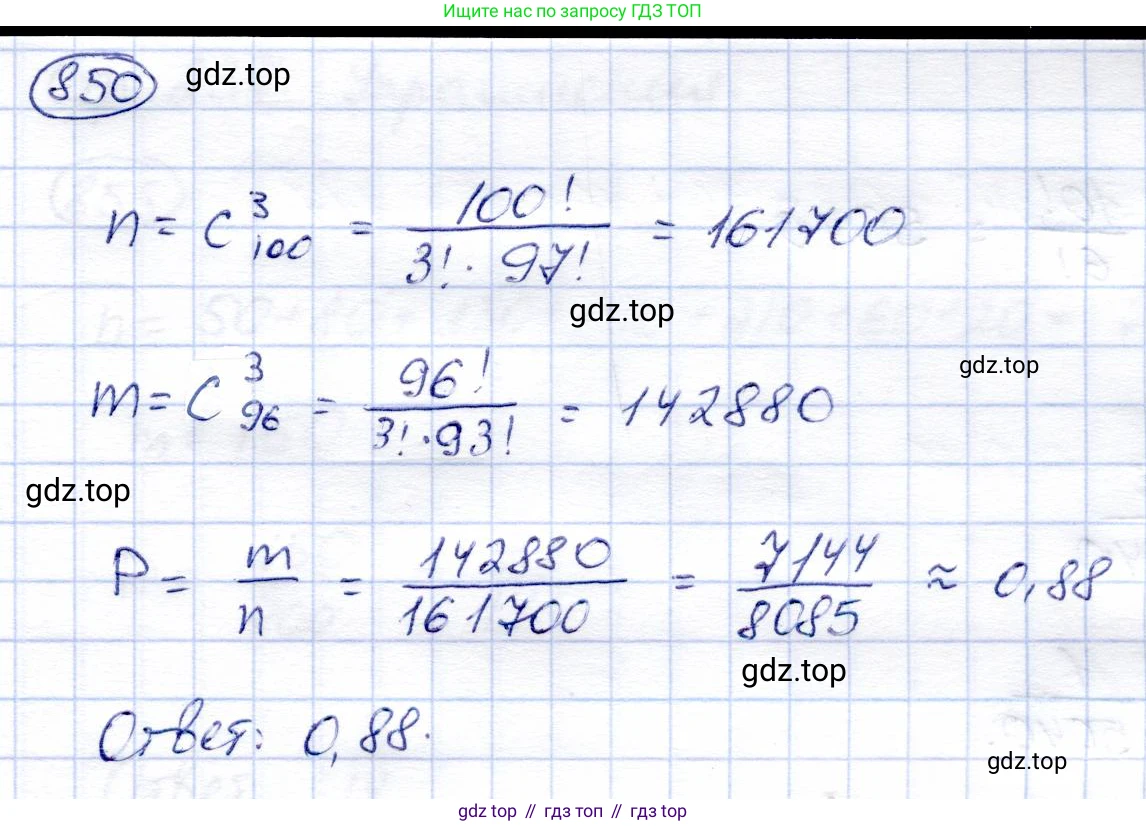 Ищите нас по запросу ГДЗ ТОП
850 gdz.top
n = C³₁₀₀ = 100! / (3! · 97!) = 161700
gdz.top
gdz.top
m = C³₉₆ = 96! / (3! · 93!) = 142880
gdz.top
P = m / n = 142880 / 161700 = 7144 / 8085 ≈ 0,88
gdz.top
Ответ: 0,88.
gdz.top
gdz top // гдз топ // gdz top